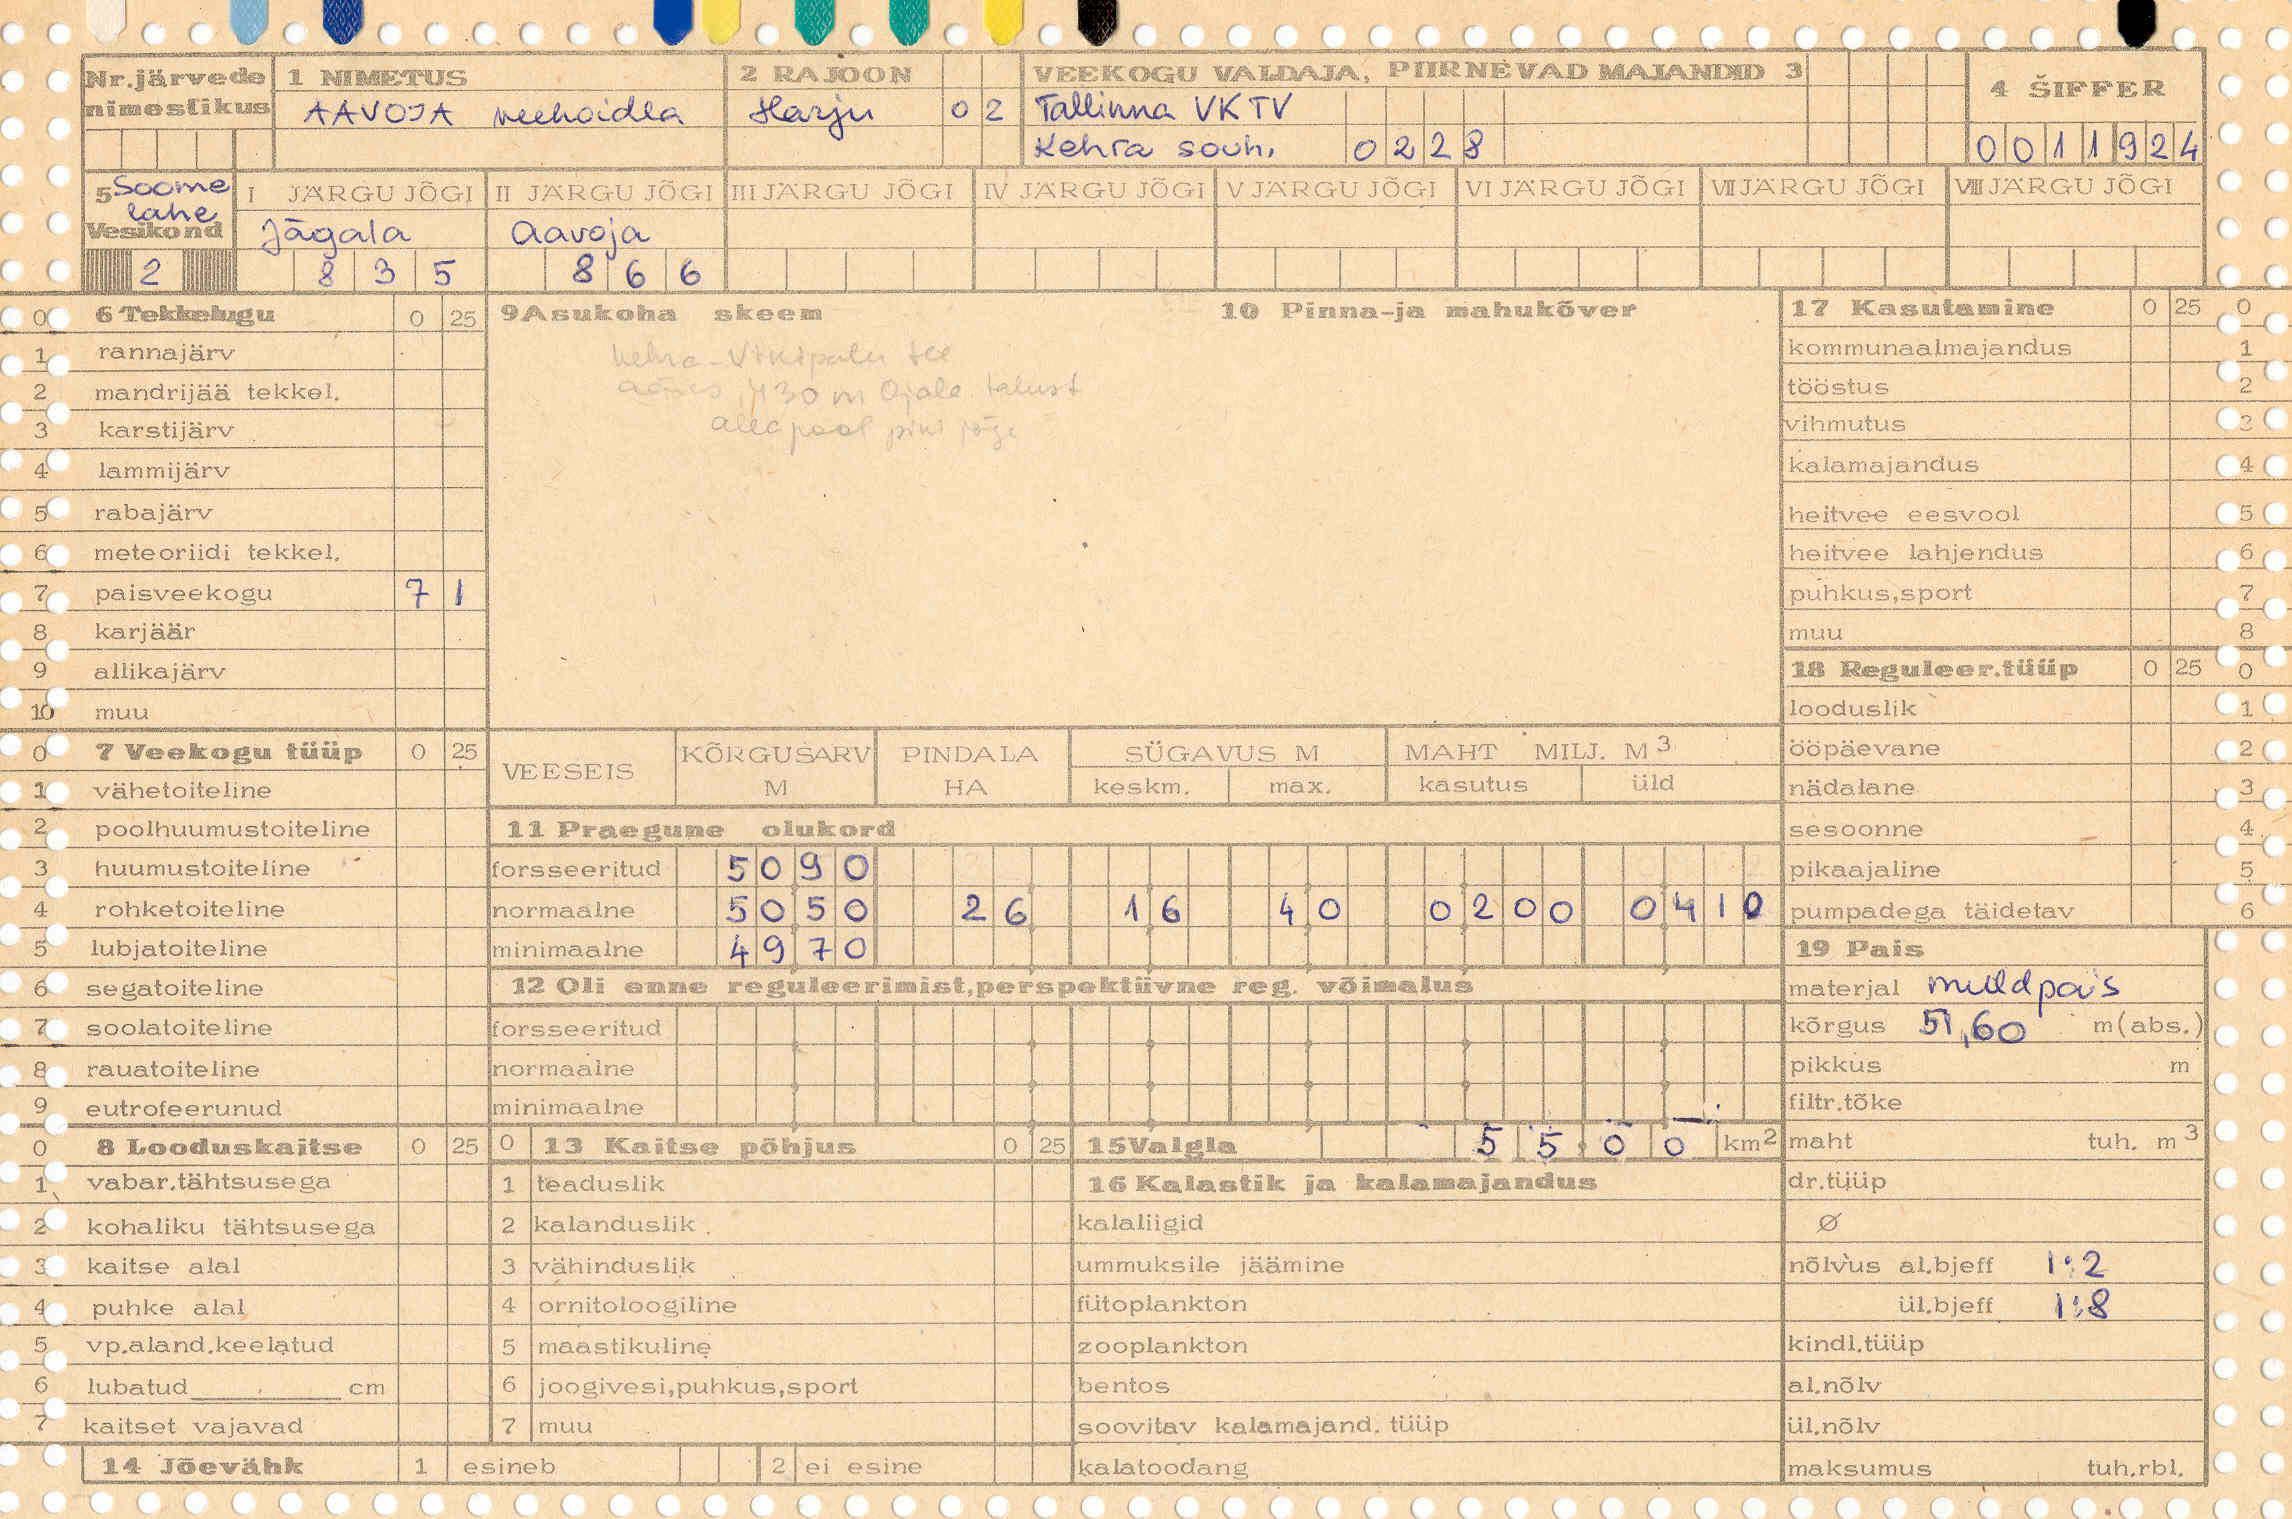 Nr.järvede nimestikus
1 NIMETUS
AAVOJA veehoidla
2 RAJOON
Harju 02
VEEKOGU VALDAJA, PIIRNEVAD MAJANDID 3
Tallinna VKTV
Kehra sovh. 0228
4 ŠIFFER
0011924
5 Soome lahe
Vesikond
2
I JÄRGU JÕGI
Jägala
835
II JÄRGU JÕGI
Aavoja
866
III JÄRGU JÕGI
IV JÄRGU JÕGI
V JÄRGU JÕGI
VI JÄRGU JÕGI
VII JÄRGU JÕGI
VIII JÄRGU JÕGI
0 6 Tekkelugu 0 25
1 rannajärv
2 mandrijää tekkel.
3 karstijärv
4 lammijärv
5 rabajärv
6 meteoriidi tekkel.
7 paisveekogu 7 1
8 karjäär
9 allikajärv
10 muu
0 7 Veekogu tüüp 0 25
1 vähetoiteline
2 poolhuumustoiteline
3 huumustoiteline
4 rohketoiteline
5 lubjatoiteline
6 segatoiteline
7 soolatoiteline
8 rauatoiteline
9 eutrofeerunud
0 8 Looduskaitse 0 25
1 vabar.tähtsusega
2 kohaliku tähtsusega
3 kaitse alal
4 puhke alal
5 vp.aland.keelatud
6 lubatud cm
7 kaitset vajavad
14 Jõevähk 1 esineb 2 ei esine
9 Asukoha skeem
Kehra-Vikipalu tee
430 m Ojale talust
allapool piki jõge
10 Pinna-ja mahukõver
VEESEIS
KÕRGUSARV M
PINDALA HA
SÜGAVUS M
keskm. max.
MAHT MILJ. M3
kasutus üld
11 Praegune olukord
forsseeritud 5090
normaalne 5050 26 16 40 0200 0410
minimaalne 4970
12 Oli enne reguleerimist,perspektiivne reg. võimalus
forsseeritud
normaalne
minimaalne
0 13 Kaitse põhjus 0 25
1 teaduslik
2 kalanduslik
3 vähinduslik
4 ornitoloogiline
5 maastikuline
6 joogivesi,puhkus,sport
7 muu
15 Valgla 5500 km2
16 Kalastik ja kalamajandus
kalaliigid
ummuksile jäämine
fütoplankton
zooplankton
bentos
soovitav kalamajand. tüüp
kalatoodang
17 Kasutamine 0 25 0
kommunaalmajandus 1
tööstus 2
vihmutus 3
kalamajandus 4
heitvee eesvool 5
heitvee lahjendus 6
puhkus,sport 7
muu 8
18 Reguleer.tüüp 0 25 0
looduslik 1
ööpäevane 2
nädalane 3
sesoonne 4
pikaajaline 5
pumpadega täidetav 6
19 Pais
materjal muldpais
kõrgus 51,60 m(abs.)
pikkus m
filtr.tõke
maht tuh. m3
dr.tüüp
Ø
nõlvus al.bjeff 1:2
ül.bjeff 1:8
kindl.tüüp
al.nõlv
ül.nõlv
maksumus tuh.rbl.